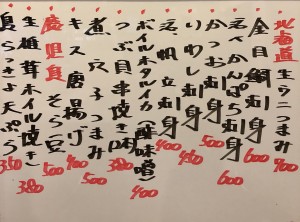 北海道 生ウニつまみ 900
金目鯛刺身 600
天然かんぱち刺身 600
かつお刺身 500
いわし刺身 400
活帆立刺身 400
ボイルホタルイカ(酢味噌) 400
つぶ貝串焼き(2本) 380
煮穴子つまみ 500
キス唐揚げ 400
鹿児島 そら豆 500
生椎茸ホイル焼き 380
島らっきょ天ぷら 380